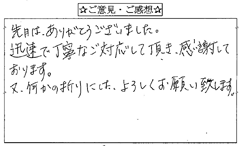 ☆ご意見・ご感想☆
先日は、ありがとうございました。
迅速で丁寧なご対応して頂き、感謝して
おります。
又、何かの折りにい、よろしくお願い致します。